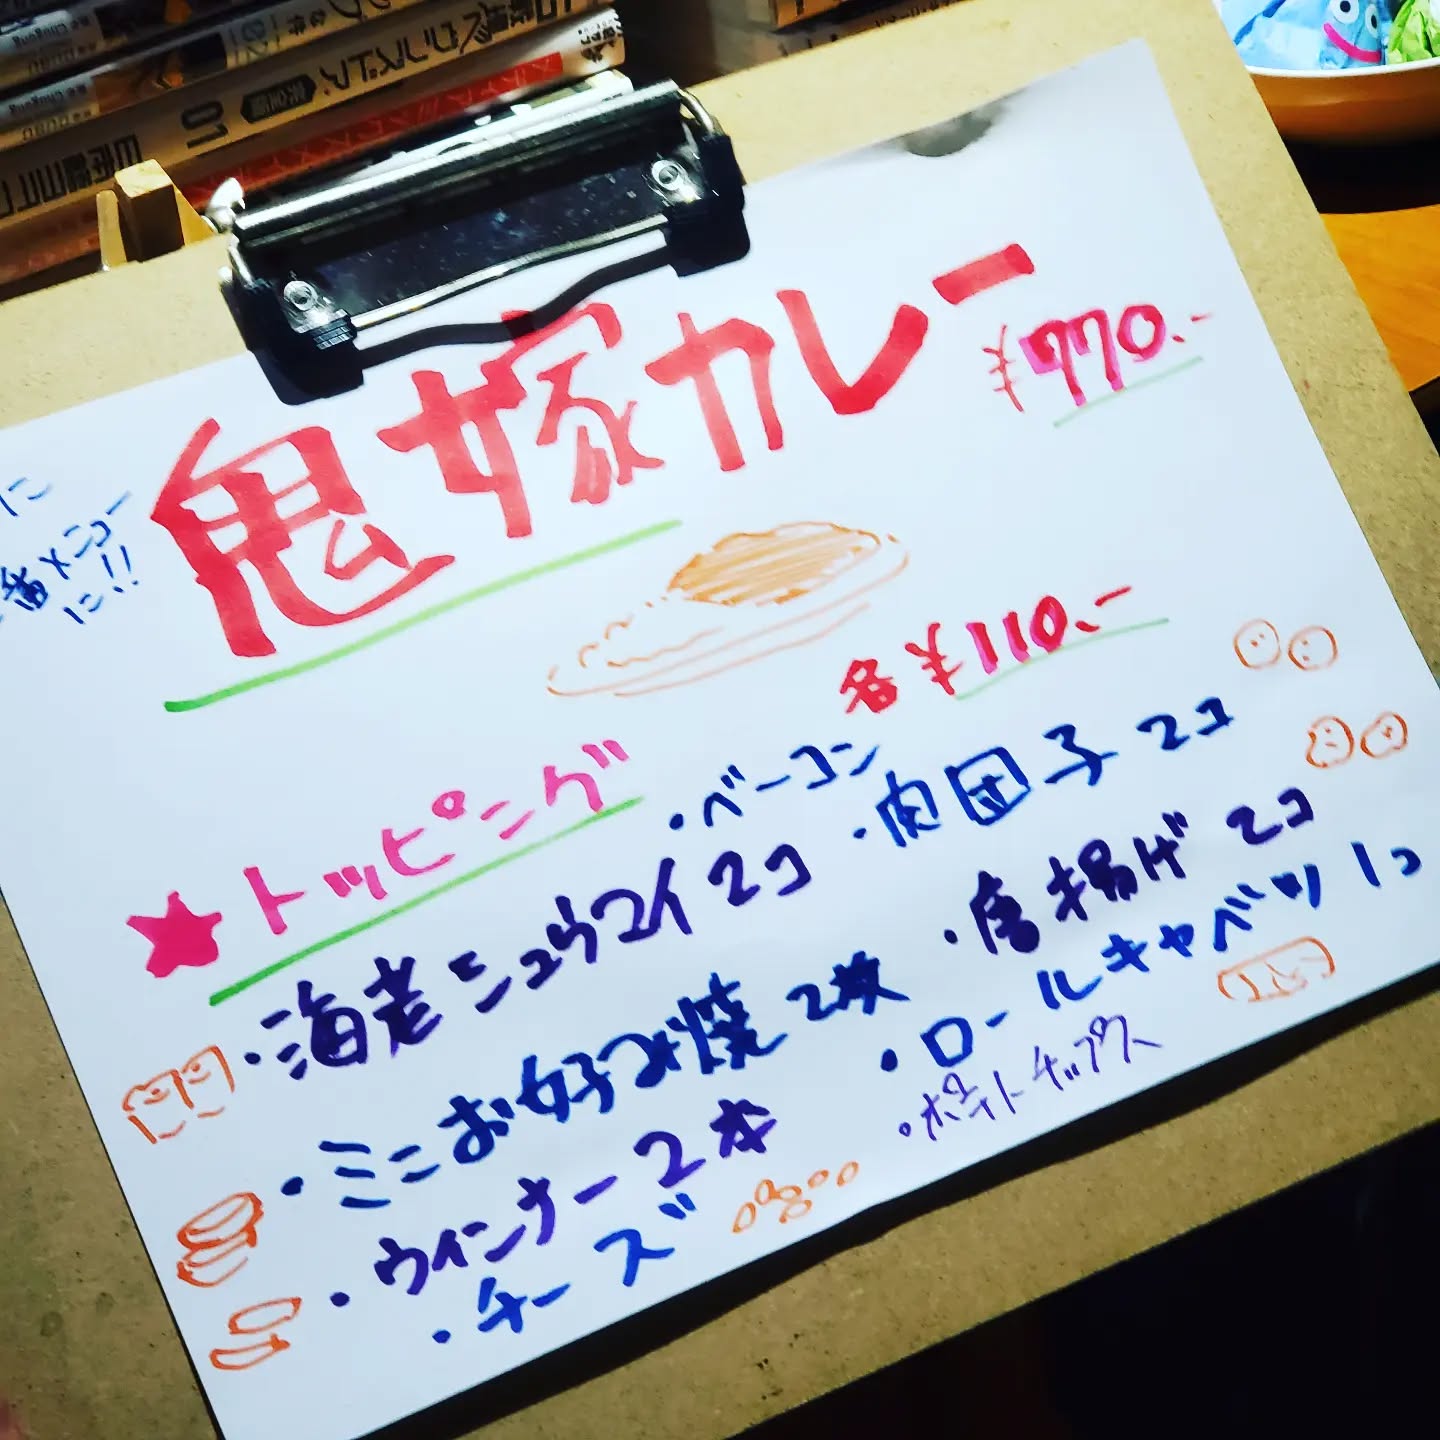 鬼嫁カレー ¥770.-
に
番メニュー
に!!
各¥110.-
★トッピング
・ベーコン
・海老シュウマイ2コ
・肉団子2コ
・ミニお好み焼2枚
・唐揚げ2コ
・ウインナー2本
・ロールキャベツ1コ
・チーズ
・ポテトチップス
01
完全版